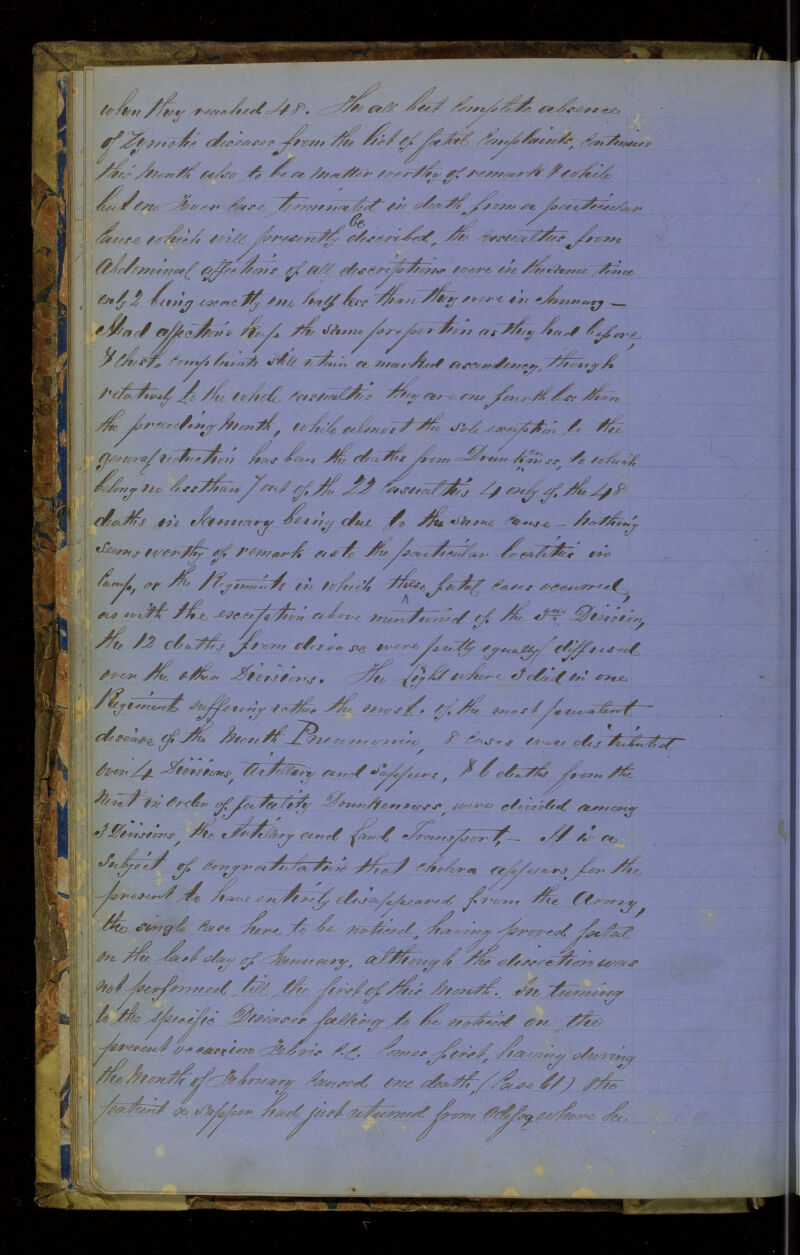 when they reached 48. The all but complete absence
of Zymotic diseases from the list of fatal Complaints, continues
this Month also to be a matter worthy of remark & while
but one Fever Case, terminated in death, from a particular
Cause which will presently be described, the casualties from
Abdominal affections of all descriptions were in the same time
only 2 being exactly one half less than they were in January —
Head affections keep the same proportion as they had before,
& Chest complaints still retain a marked ascendency, though
relatively to the whole casualties they are one fourth less than
the preceding Month, while almost the sole exception to the
general reduction has been the deaths from Drunkenness, to which
belong no less than 7 out of the 22 Casualties 4 only of the 48
deaths in January being due to the same cause — Nothing
seems worthy of remark as to the particular localities in
Camp, or the Regiments in which these fatal cases occurred,
as with the exception above mentioned of the 3rd Division,
the 12 deaths from disease were pretty equally diffused
over the other Divisions. The Light where 3 died in one
Regiment suffering rather the most. Of the most prevalent
disease of the Month Pneumonia, 8 cases were distributed
over 4 Divisions, Artillery and Sappers, & 6 deaths from the
next in order of fatality Drunkenness, were divided among
3 Divisions, the Artillery and Land Transport, — It is a
Subject of congratulation that cholera appears for the
present to have entirely disappeared from the Army,
the single case here to be noticed, having proved fatal
on the last day of January, although the dissection was
not performed till the first of this Month. In turning
to the specific Diseases falling to be noticed on the
present occasion Febris C.C. Comes first, having during
the Month of February Caused one death, (Case 61) the
patient a Sapper had just returned from where he